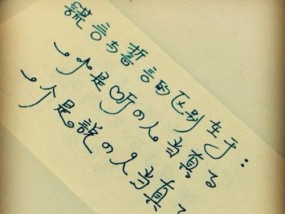 謊言与誓言的区别在于：
一个是听の人当真る
一个是説の人当真る